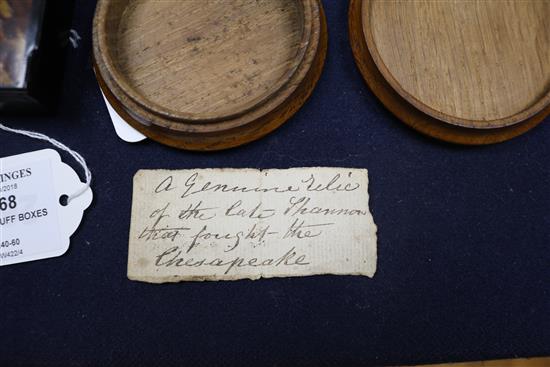 INGES
/2018
68
UFF BOXES
40-60
W422/4
A Genuine relic
of the late Shannon
that fought the
Chesapeake